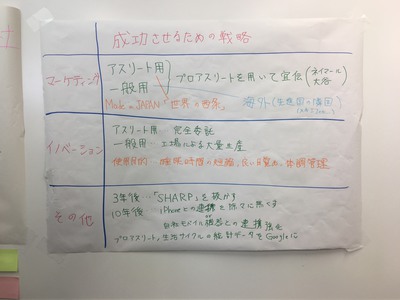 成功させるための戦略
マーケティング
アスリート用
一般用
プロアスリートを用いて宣伝(ネイマール
大谷)
Made in JAPAN「世界の
海外
イノベーション
アスリート用 完全委託
一般用・工場による大量生産
使用目的 睡眠時間の短縮、良い目覚め、体調管理
その他
3年後…「SHARP」を
10年後 iPhoneとの連携を徐々に無くす
自社モバイル機器との連携強化
プロアスリート、生活サイクルの統計データをGoogleに